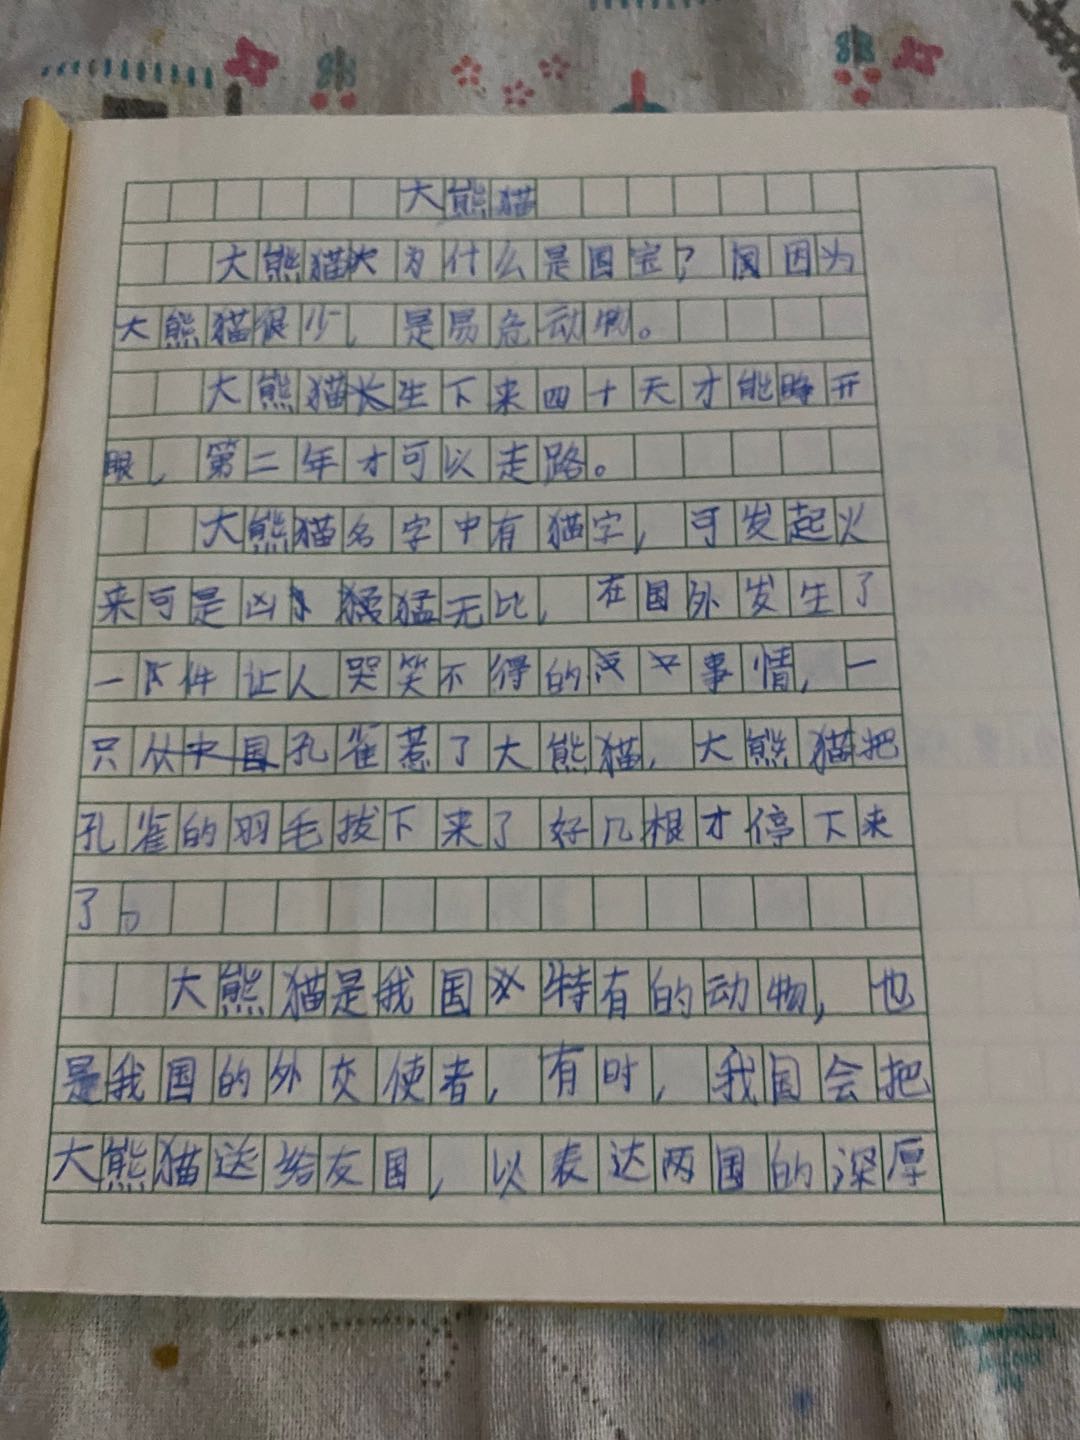 大熊猫
大熊猫为什么是国宝？因为
大熊猫很少，是易危动物。
大熊猫生下来四十天才能睁开
眼，第二年才可以走路。
大熊猫名字中有猫字，可发起火
来可是凶猛无比，在国外发生了
一件让人哭笑不得的事情，一
只孔雀惹了大熊猫，大熊猫把
孔雀的羽毛拔下来了好几根才停下来
了。
大熊猫是我国特有的动物，也
是我国的外交使者，有时，我国会把
大熊猫送给友国，以表达两国的深厚